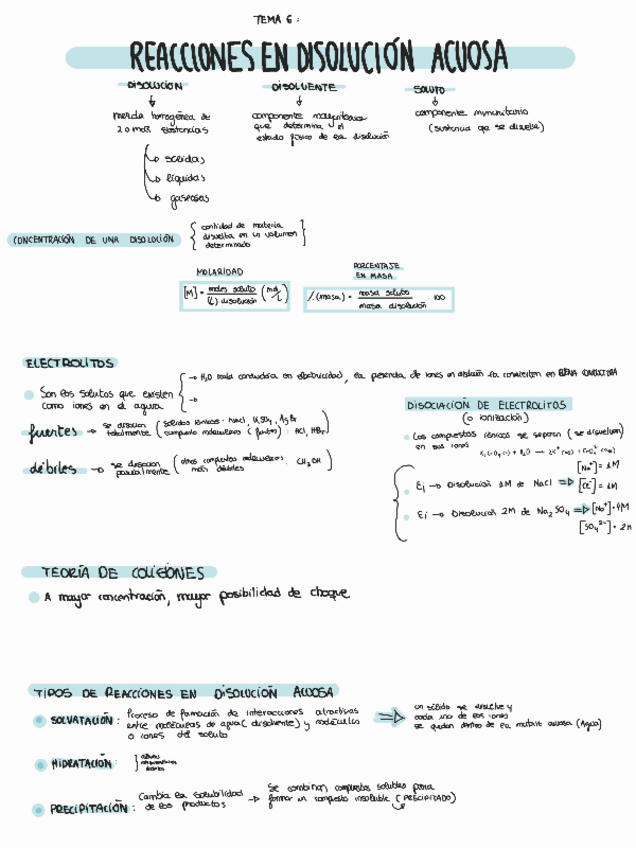 TEMA 6:
REACCIONES EN DISOLUCIÓN ACUOSA
DISOLUCIÓN
mezcla homogénea de
2 o más sustancias
→ sólidas
→ líquidas
→ gaseosas
DISOLVENTE
componente mayoritario
que determina el
estado físico de la disolución
SOLUTO
componente minoritario
(sustancia que se disuelve)
CONCENTRACIÓN DE UNA DISOLUCIÓN
cantidad de materia
disuelta en un volumen
determinado
MOLARIDAD
[M] = moles soluto / (L) disolución (mol/L)
PORCENTAJE
EN MASA
% (masa) = masa soluto / masa disolución · 100
ELECTROLITOS
Son los solutos que existen
como iones en el agua
→ H2O mala conductora en electricidad, la presencia de iones en disolución la convierten en BUENA CONDUCTORA
→
fuertes → se disocian
totalmente
(solidos iónicos: NaCl, K2SO4, AgBr
compuesto moleculares (fuertes): HCl, HBr)
débiles → se disocian
parcialmente
(otros compuestos moleculares
más débiles : CH3OH)
DISOCIACIÓN DE ELECTROLITOS
(o ionización)
Los compuestos iónicos se separan (se disuelven)
en sus iones
Ej → Disolución 1M de NaCl ⇒ [Na+] = 1M
[Cl-] = 1M
Ej → Disolución 2M de Na2SO4 ⇒ [Na+] = 4M
[SO4 2-] = 2M
TEORÍA DE COLISIONES
A mayor concentración, mayor posibilidad de choque
TIPOS DE REACCIONES EN DISOLUCIÓN ACUOSA
SOLVATACIÓN: Proceso de formación de interacciones atractivas
entre moléculas de agua (disolvente) y moléculas
o iones del soluto
⇒ un sólido se disuelve y
cada uno de los iones
se quedan dentro de la matriz acuosa (Agua)
HIDRATACIÓN:
PRECIPITACIÓN: Cambia la solubilidad
de los productos
→ Se combinan compuestos solubles para
formar un compuesto insoluble (PRECIPITADO)